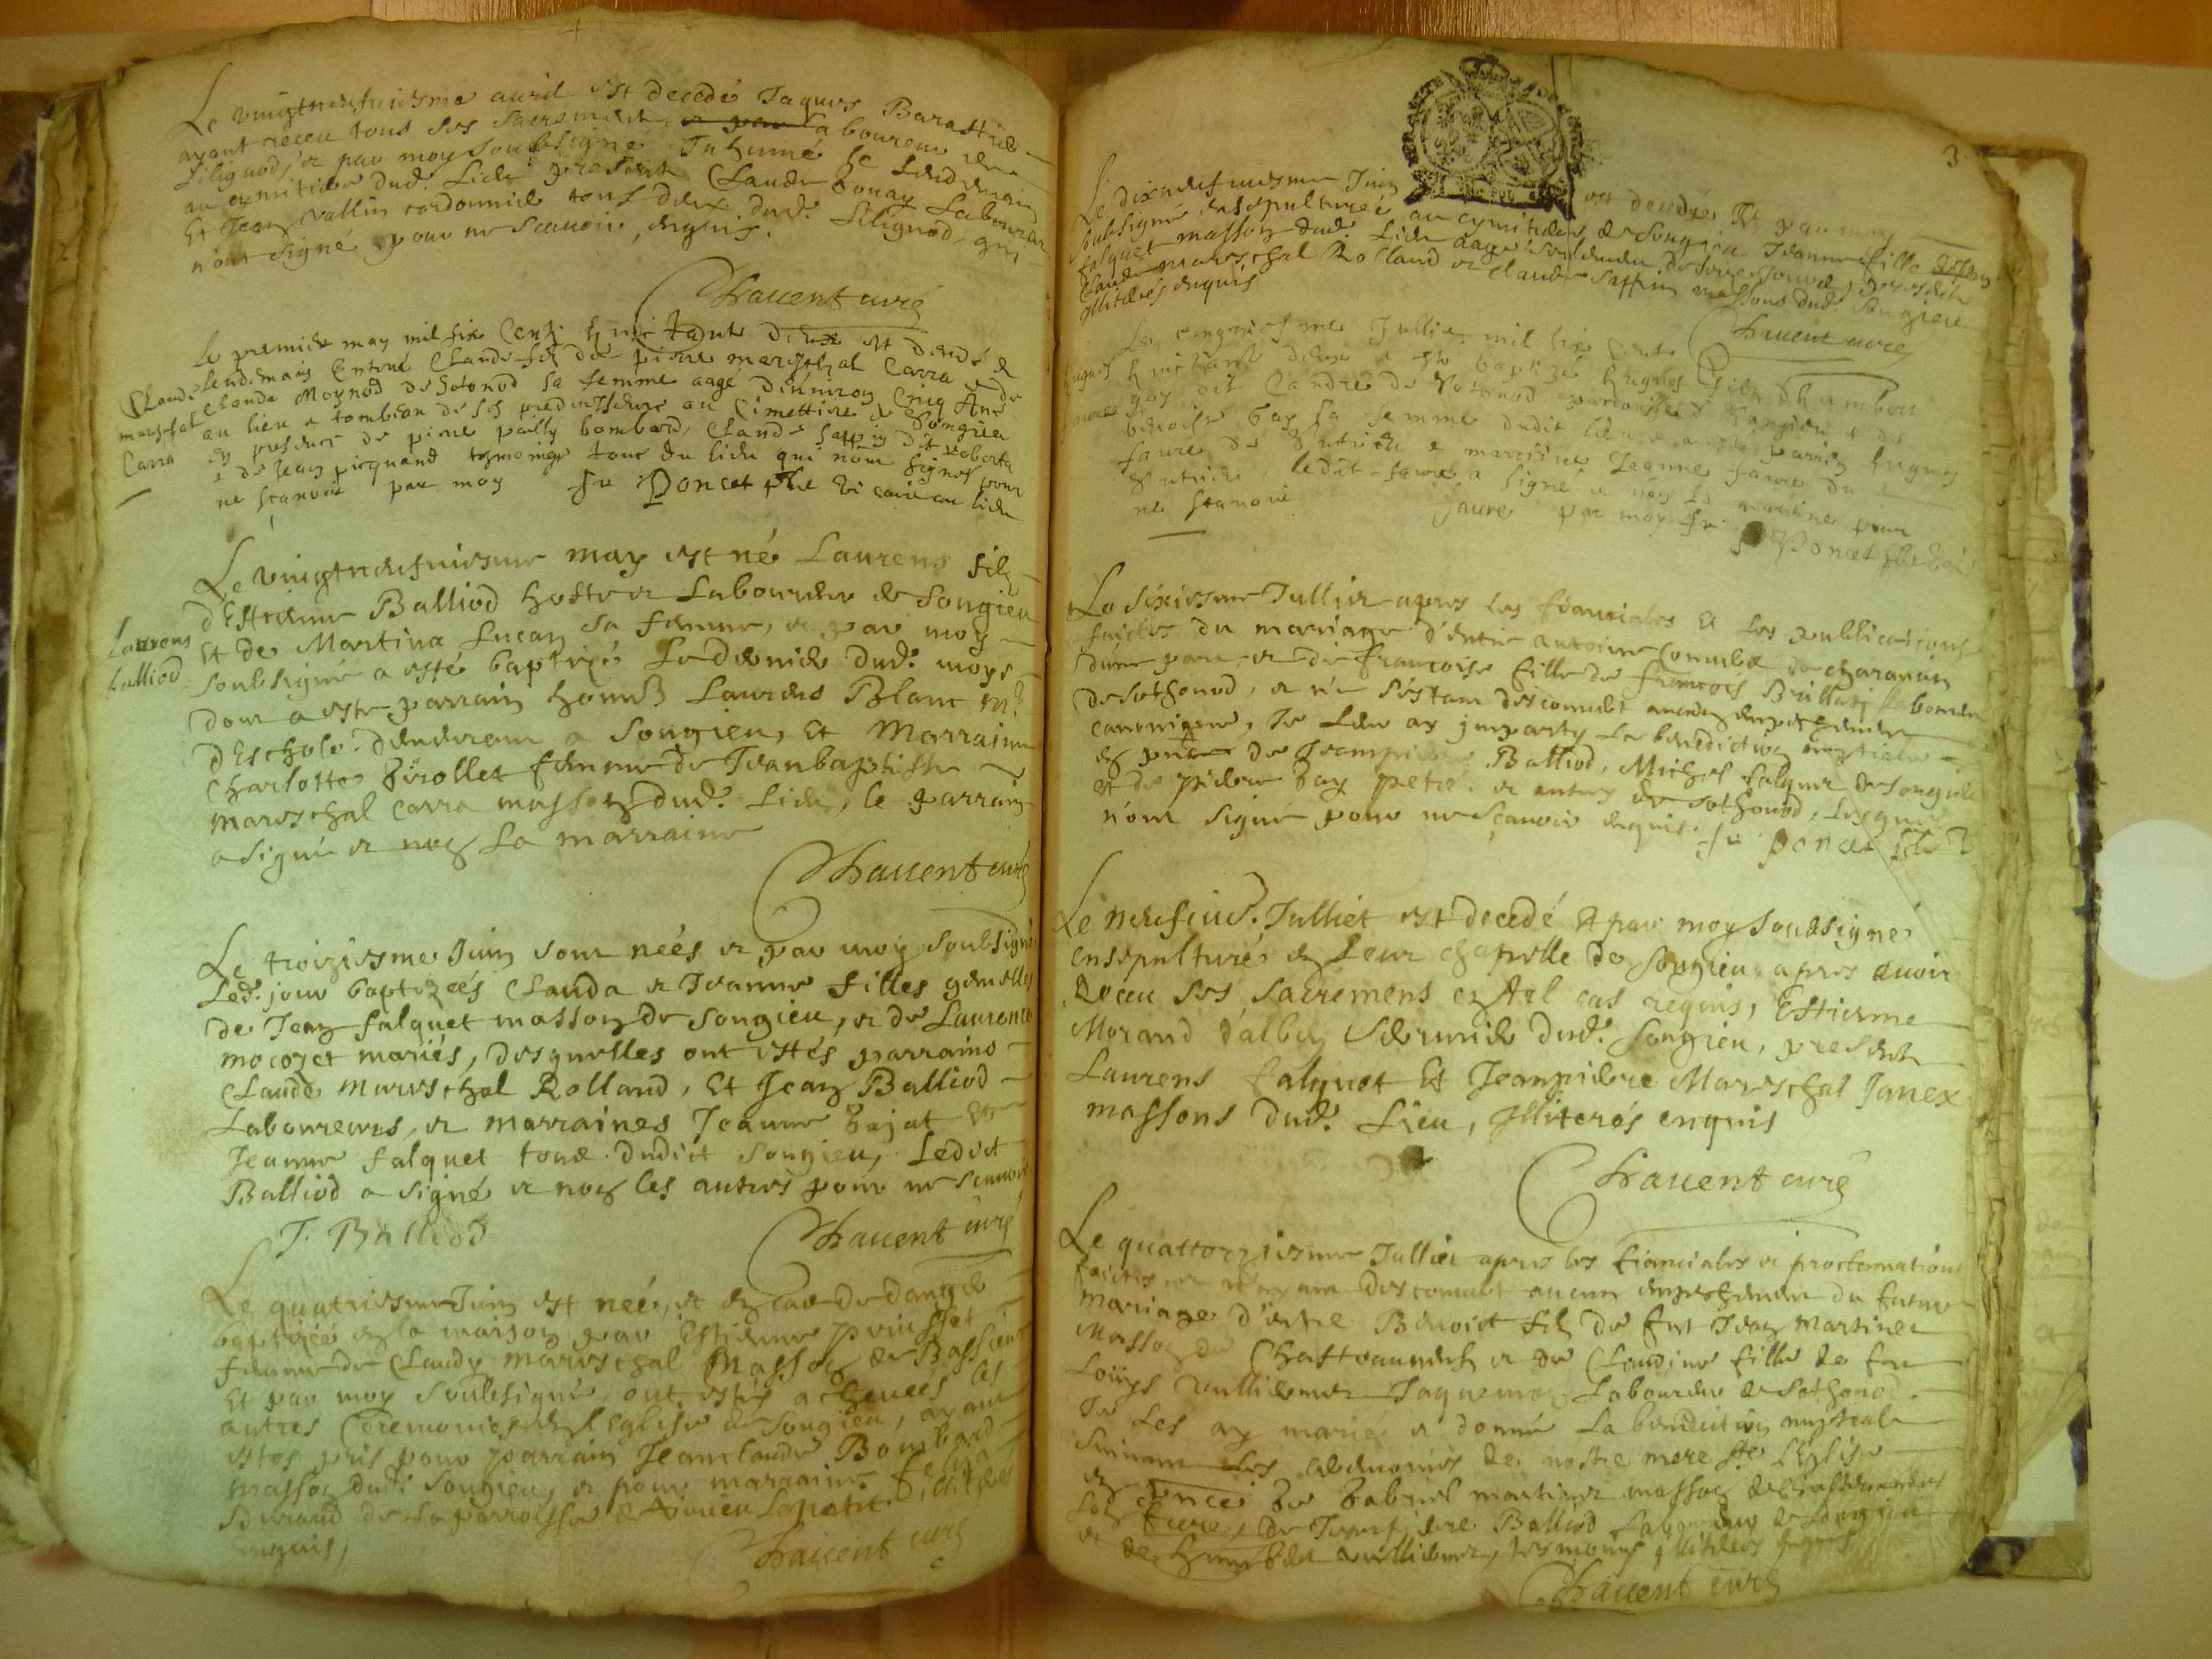 Le vingtneufuiesme auril est decedé Jaques Barastier
ayant receu tous ses sacremens, laboureur de
Silignod, et par moy soubsigné Inhumé le Lendemain
au cymitiere dud. Lieu present Claude Bonay Laboureur
Et Jean Vallin cordonnier tous deux dud. Silignod, qui
n'ont signé pour ne scauoir, enquis.
Chauent curé
le premier may mil six Cents huictante deux est decedé &
lendemany Enteré Claude fils de pierre mareschal Carra & de
Clauda Moynod de Sotonod sa femme aagé d'environ Cinq Ans
au lieu & tombeau de ses predecesseurs au Cimettiere de Songieu
en presence de pierre pally bombard, Claude sappin dit roberta
& de Jean picquand tesmoings tous du lieu qui n'ont signés pour
ne scauoir par moy fr Poncet pbre Vicaire au lieu
Claude
mareschal
Carra
Le vingtneufuiesme may est né Laurens filz
d'Estienne Balliod hoste et Laboureur de Songieu
Et de Martina Lucan sa femme, et par moy
soubsigné a esté baptizé Le dernier dud. moys
dont a esté parrain honn. Laurens Blanc M.
d'Eschole demeurant a Songieu, Et Marraine
Charlotte Brollet femme de Jeanbaptiste
Mareschal Carra masson dud. Lieu, le parrain
a signé et non La marraine
Laurens
balliod
Chauent curé
Le troiziesme Juin sont nées et par moy soubsigné
Led. jour baptizées Clauda et Jeanne filles gemelles
de Jean falquet masson de Songieu, et de Laurence
mocozet mariés, desquelles ont estés parrains
Claude Mareschal Rolland, Et Jean Balliod
Laboureurs, et marraines Jeanne Bajat Et
Jeanne falquet tous dudict Songieu, Ledict
Balliod a signé et non les autres pour ne scauoir
J. Balliod
Chauent curé
Le quatriesme Juin est neé, et en cas de danger
baptizée en la maison par Estienne
femme de Claudy Mareschal Masson de Bassieu
Et par moy soubsigné, ont estés acheuées les
autres Ceremonies en l'Eglise de Songieu, ayant
estes pris pour parrain Jeanclaude Bombard
masson dud. Songieu, et pour marraine
de la parroisse de Virieu Lepetit. illiterés
enquis,
Chauent curé
3
Le dixneufuiesme Juin est decedée Et par moy
soubsigné ensepulturée au cymitiere de Songieu Jeanne fille de Jean
falquet masson dud. Lieu aagée seulement de seize jours, presents
Claude mareschal Rolland et Claude Sappin massons dud. Songieu
illiterés enquis
Chauent curé
Le cinquiesme Jullier mil six cents
huictante deux a esté baptizé hugues fils d'humbert
gay dit Candre de Sotonod parroisse de Songieu & de
benoiste bay sa femme dudit lieu & a esté parrin hugues
faure de Sutrieu & marrine Jeanne faure du
Sutrieu, ledit faure a signé & non la marrine pour
ne scauoir
faure par moy fr Poncet pbre
hugues
Le sixiesme Jullier apres les fiancialles Et les publications
faictes du mariage d'entre antoine de charancin
d'une part, et de francoise fille de francois Brillat Laboureur
de Sothonod, et n'e s'estant descouuert aucung empechement
canonique, Je Leur ay imparty La benediction nuptiale
en pnce de Jeanpierre Balliod, Michel falquet de Songieu
Et de Pierre Bay et autres de Sothonod, Lesquels
n'ont signé pour ne scauoir enquis. fr poncet pbre V
Le neufuie. Julliet est decedé Et par moy soubsigné
ensepulturé en leur chapelle de Songieu apres auoir
Receu ses sacremens en tel cas requis, Estienne
Morand d'albey dud. Songieu, presents
Laurens falquet Et Jeanpierre Mareschal Janex
massons dud. Lieu, illiterés enquis
Chauent curé
Le quattorziesme Jullier apres les fiancialles et proclamations
faictes, et n'ayant descouuert aucun empeschement du futur
Mariage d'entre Benoict filz de feu Jean Martinet
Masson de et de Claudine fille de feu
Loüys Vulliermet Jaquemoz Laboureur de Sothonod
Je Les ay mariés et donné La benediction nuptiale
suiuant Les ceremonies de nostre mere ste Eglise
en pnce de Gabriel martinet masson
son frere, de Jeanpierre Balliod Laboureur de Songieu
et de Humbert Vulliermet, tesmoins illiterés enquis
Chauent curé